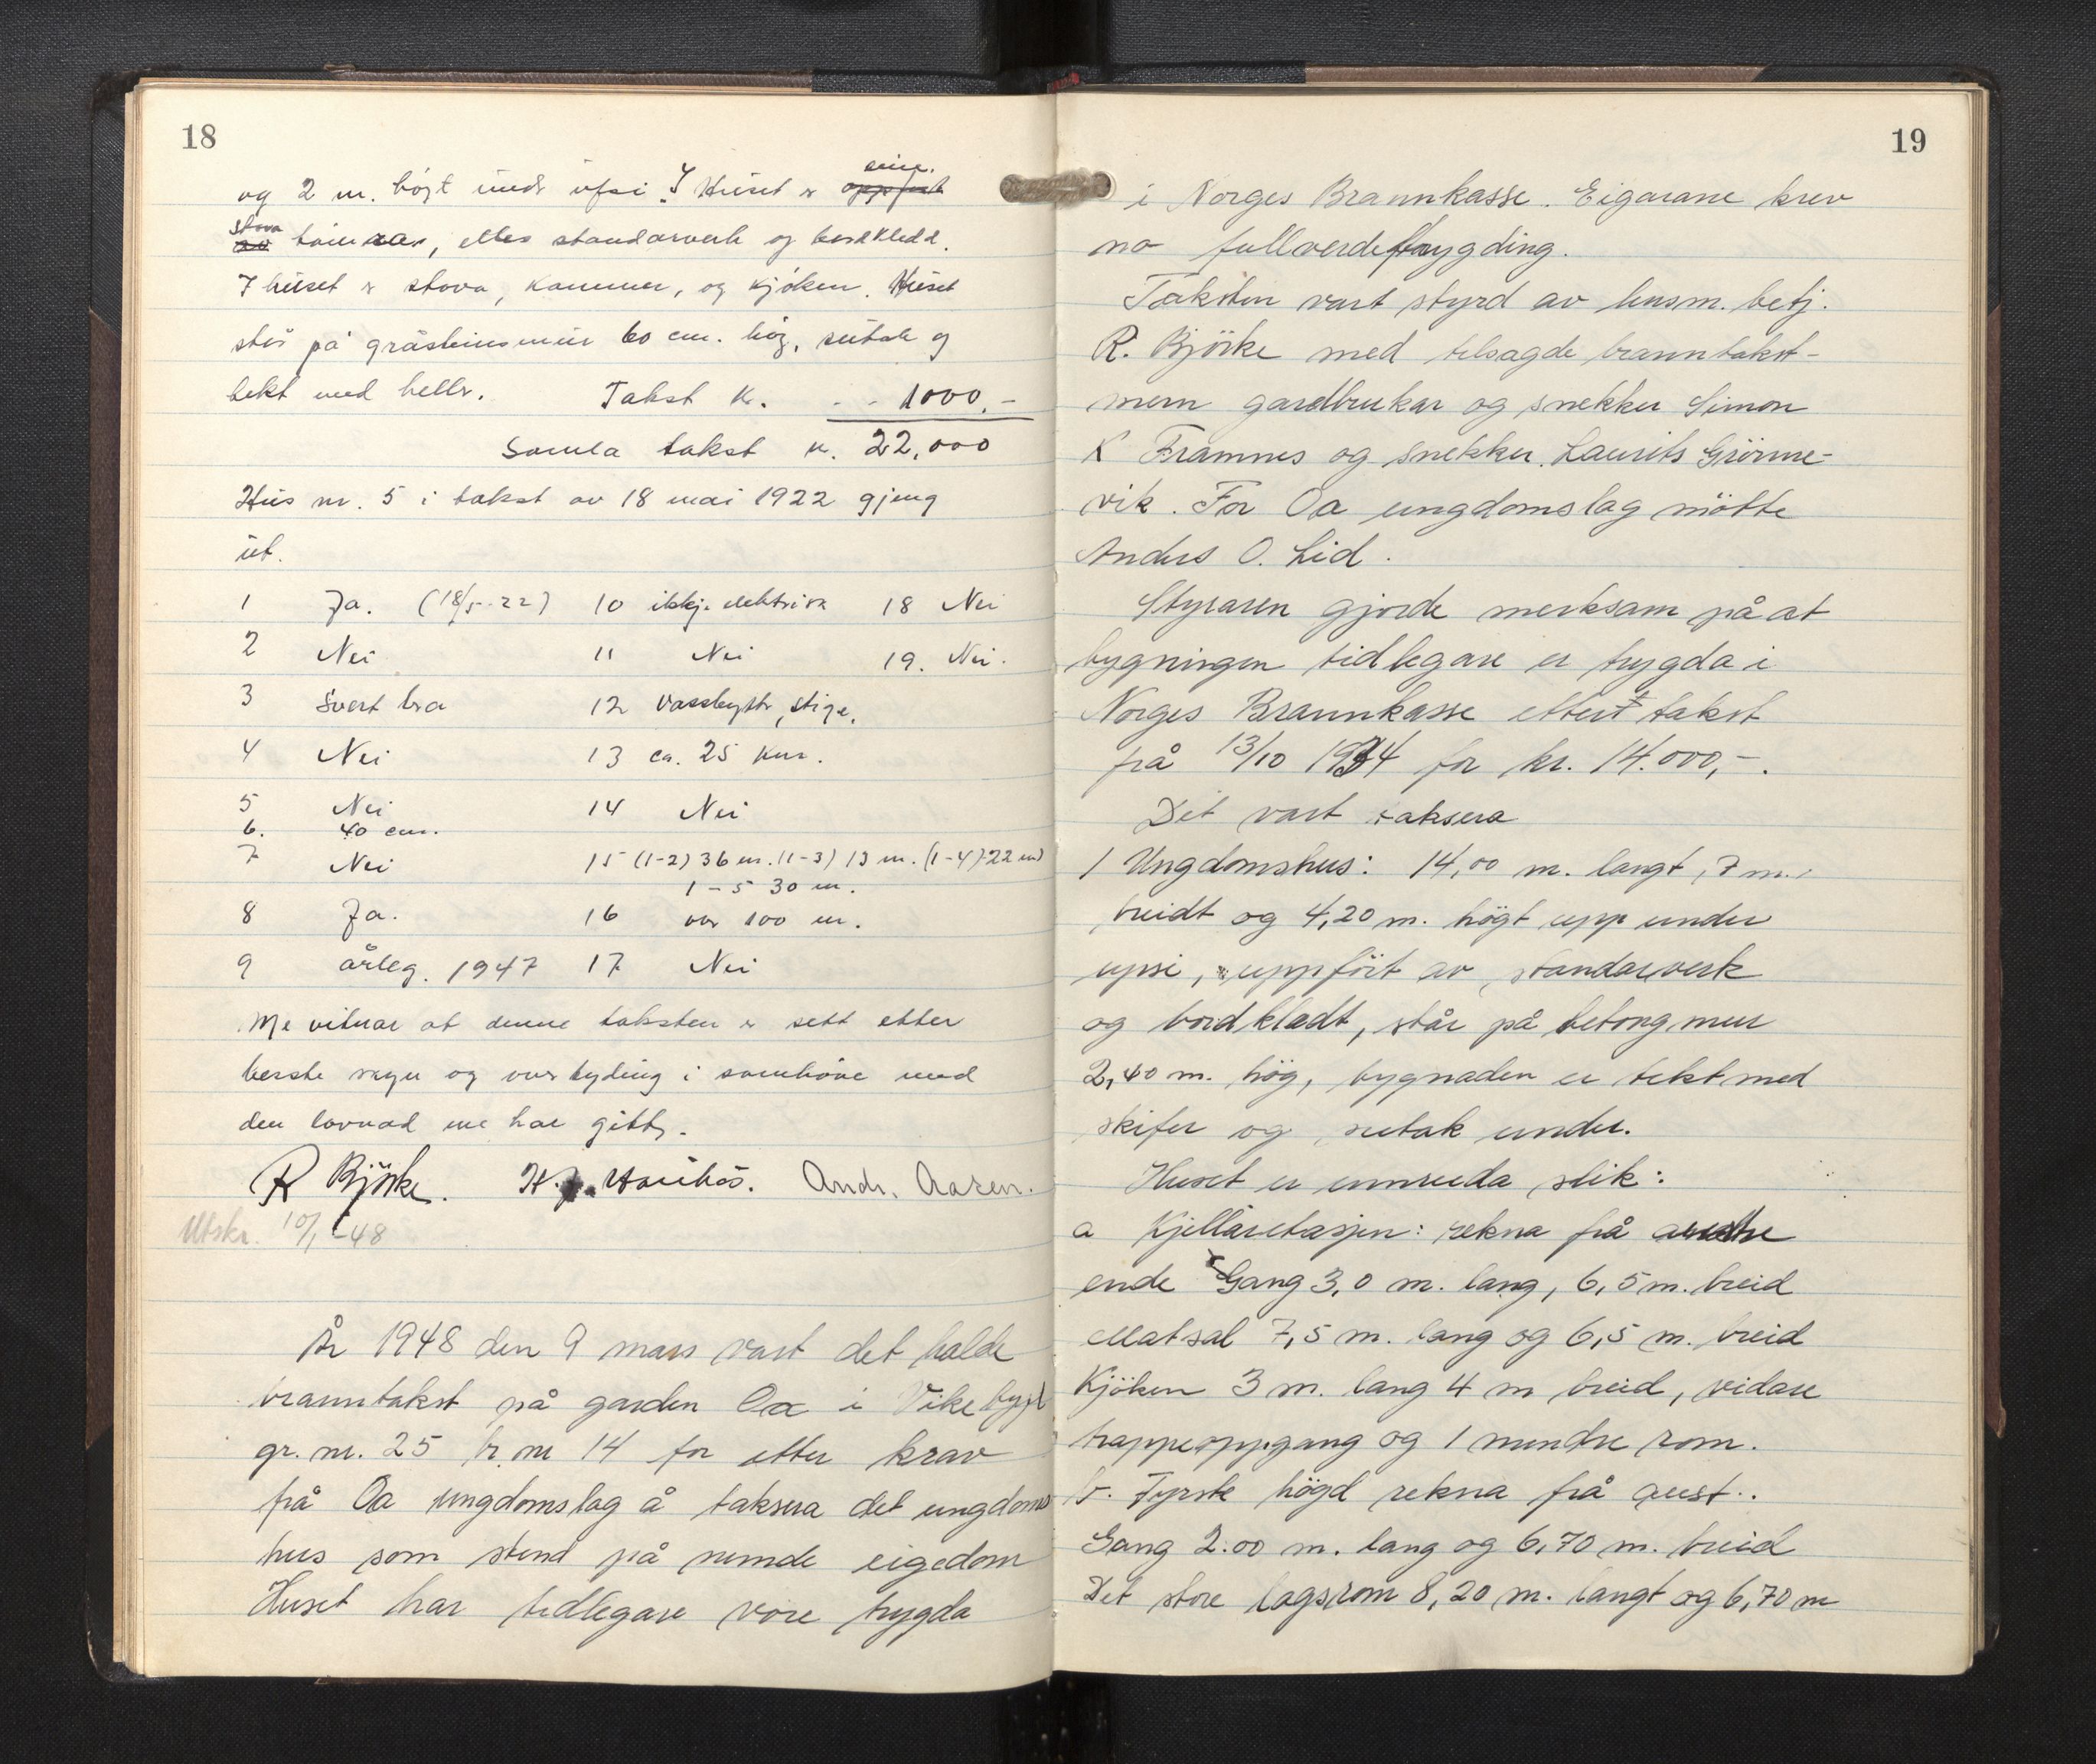 18
og 2 m. högt under ufsi. I Huset er
stova tömra, elles standarverk og bordkledd.
I huset er stova, kammer, og kjöken. Huset
står på gråsteinsmur 60 cm. høg, sutak og
tekt med heller. Takst kr. - - 1000,-
Samla takst kr. 22,000
Hus nr. 5 i takst av 18 mai 1922 gjeng
ut.
1 Ja. (18/5-22) 10 ikkje elektrisk 18 Nei
2 Nei 11 Nei 19. Nei.
3 Svert bra 12 Vassbytte, stige.
4 Nei 13 ca. 25 km.
5 Nei 14 Nei
6. 40 cm.
7 Nei 15 (1-2) 36 m. (1-3) 13 m. (1-4) 22 m)
1-5 30 m.
8 Ja. 16 over 100 m.
9 årleg. 1947 17 Nei
Me vitnar at denne taksten er sett etter
beste skyn og overtyding i samhöve med
den lovnad me har gitt.
R Björke. Andr. Aasen.
Utskr. 10/1-48
År 1948 den 9 mars vart det halde
branntakst på garden Oa i Vikebygd
gr. nr. 25 br. nr 14 for etter krav
frå Oa ungdomslag å taksera det ungdoms
hus som stend på nemde eigedom
Huset har tidlegare vore trygda
19
i Norges Brannkasse. Eigarane krev
no fullverdetrygding.
Taksten vart styrd av lensm. betj.
R. Björke med tilsagde branntakst-
menn gardbrukar og snekker Simon
K Framnes og snekker Laurits Grönne-
vik. For Oa ungdomslag mötte
Anders O. Lid.
Styraren gjorde merksam på at
bygningen tidlegare er trygda i
Norges Brannkasse etter takst
frå 13/10 1934 for kr. 14.000,-.
Det vart taksera
1 Ungdomshus: 14,00 m. langt, 7 m.
breidt og 4,20 m. högt upp under
upsi, uppfört av standarverk
og bordkledt, står på betong mur
2,40 m. hög, bygnaden er tekt med
skifer og sutak under.
Huset er innreda slik:
a Kjellaretasjen: rekna frå austre
ende Gang 3,0 m. lang, 6,5 m. breid
Matsal 7,5 m. lang og 6,5 m. breid
Kjöken 3 m. lang 4 m breid, vidare
trappeoppgang og 1 mindre rom.
b. Fyrste högd rekna frå aust.
Gang 2.00 m. lang og 6,70 m. breid
Det store lagsrom 8,20 m. langt og 6,70 m